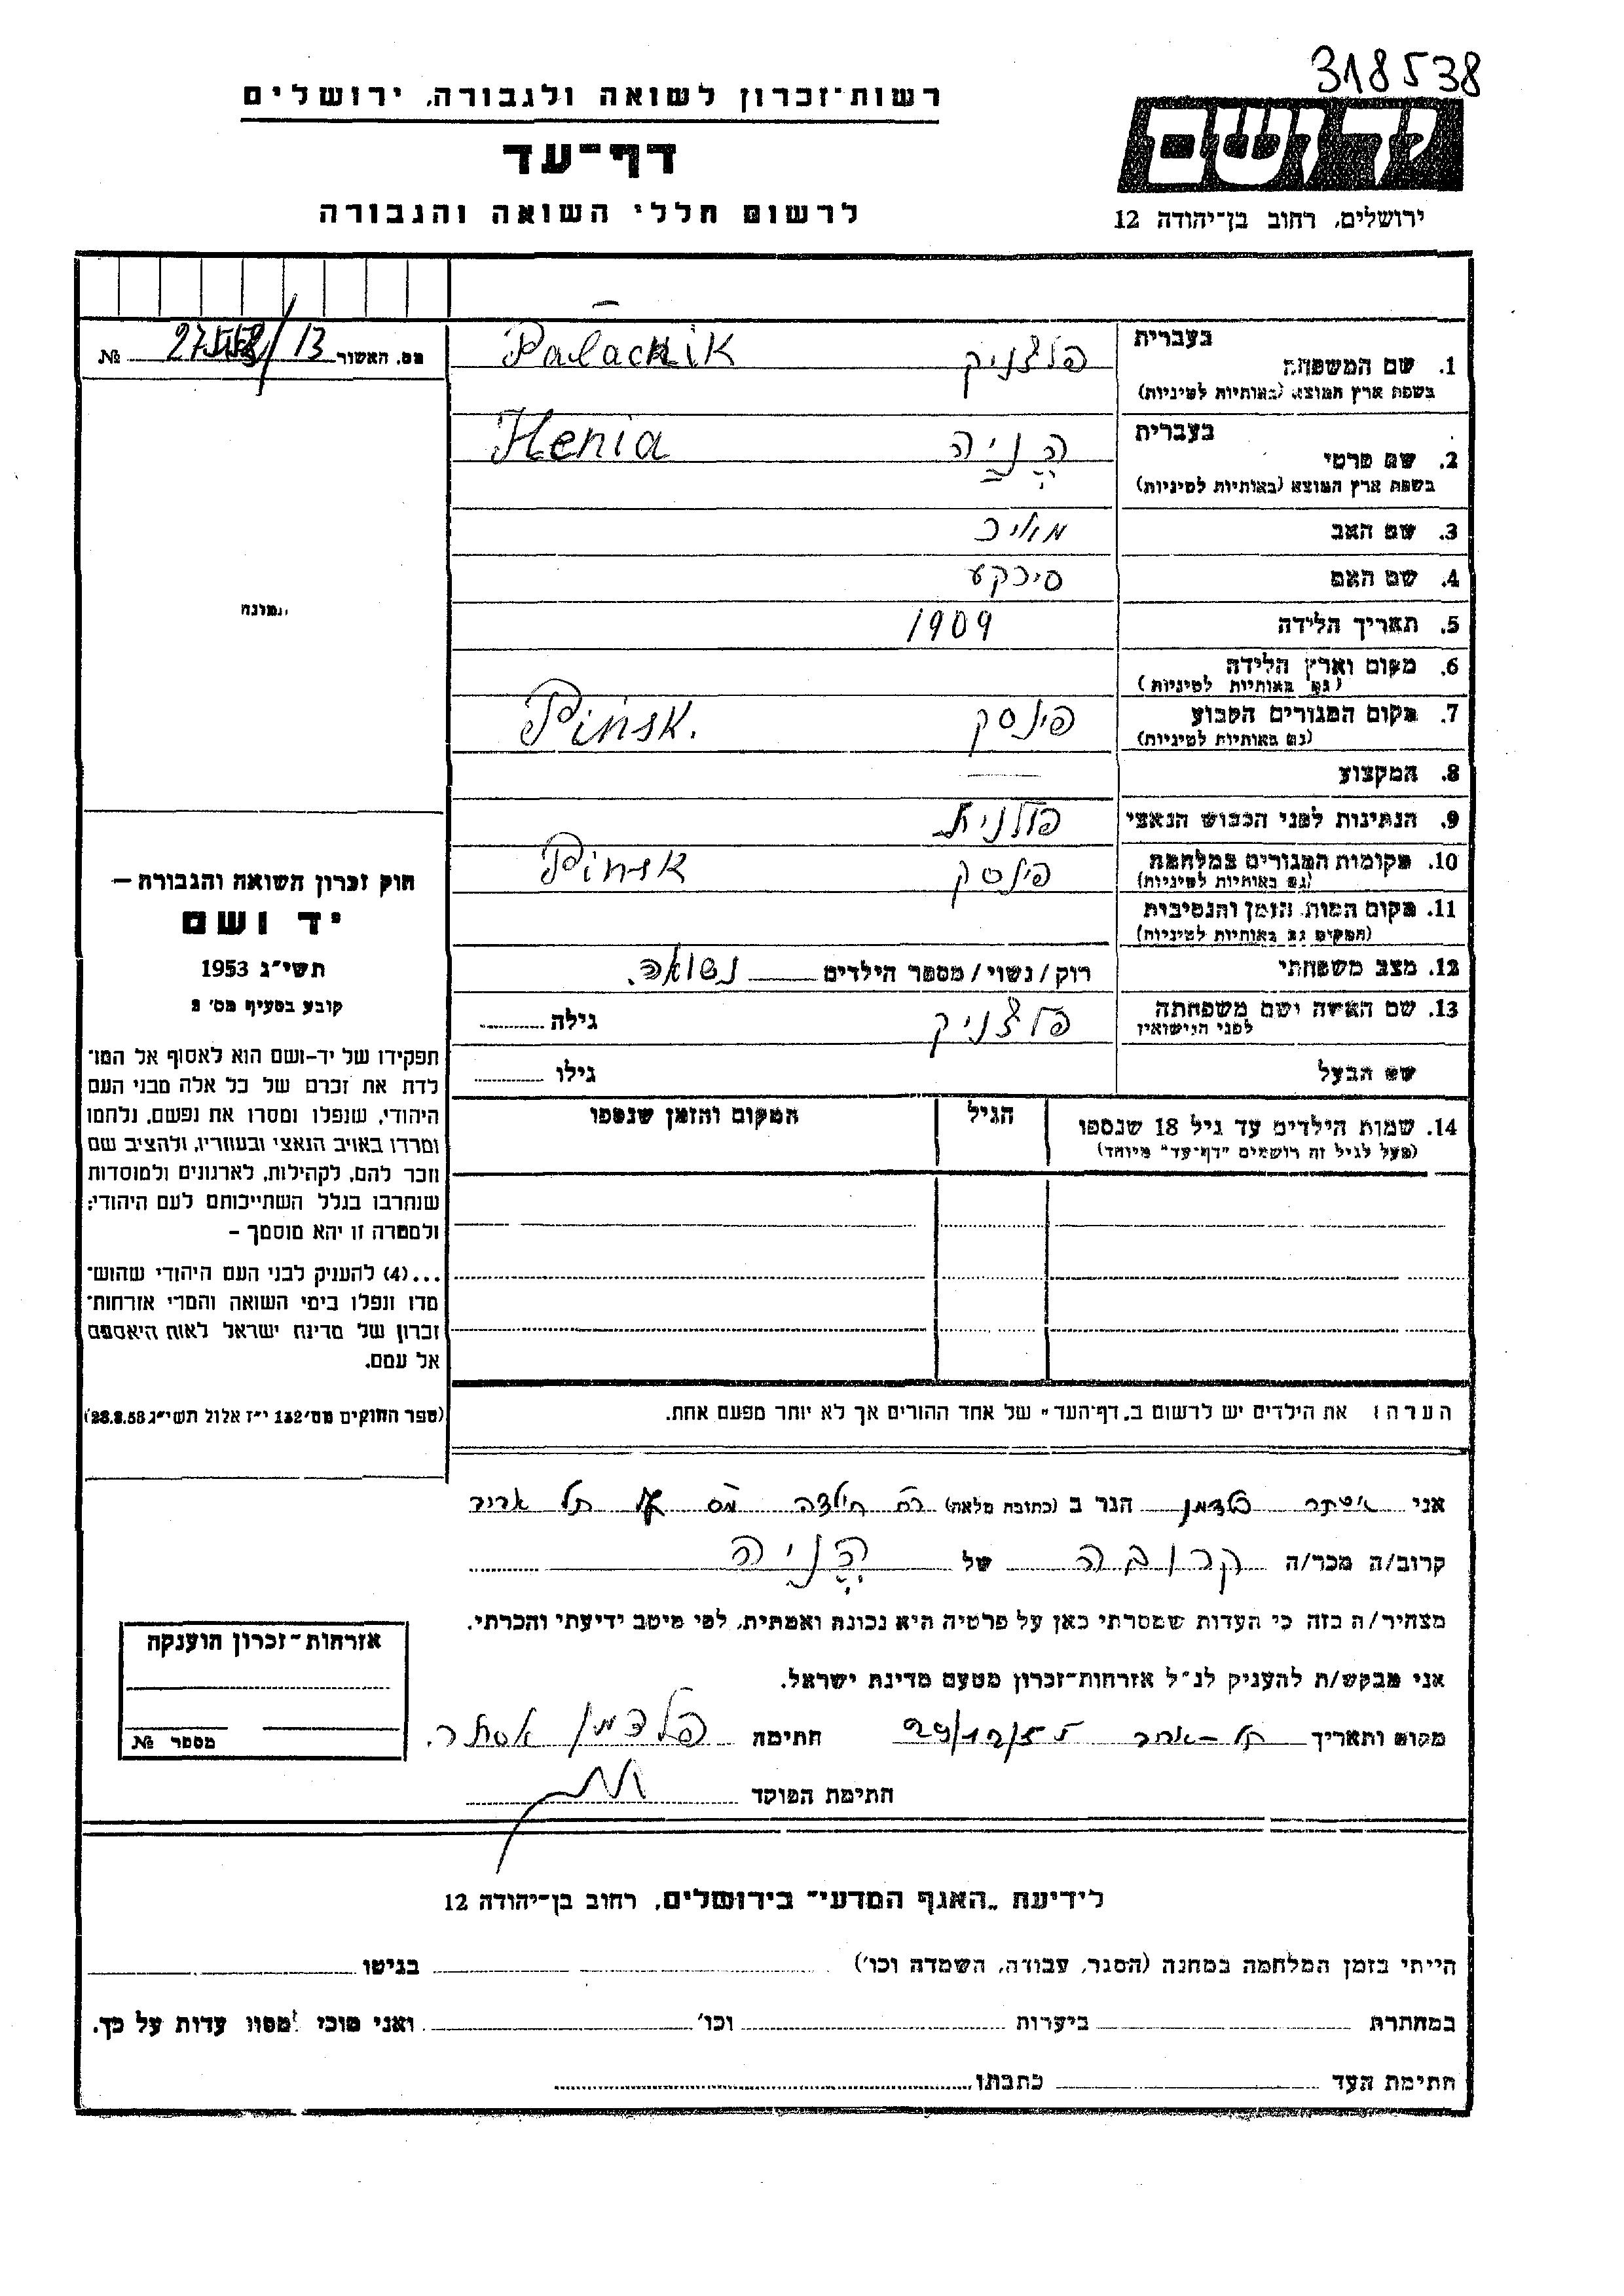 318538
רשות־זכרון לשואה ולגבורה, ירושלים
דף־עד
לרשום חללי השואה והגבורה
ידושם
ירושלים, רחוב בן־יהודה 12
מס. האשור 13 / №
בעברית
1. שם המשפחה פלצניק Palacnik
בשפת ארץ המוצא (באותיות לטיניות)
בעברית
2. שם פרטי הניה Henia
בשפת ארץ המוצא (באותיות לטיניות)
3. שם האב
4. שם האם
5. תאריך הלידה 1909
6. מקום וארץ הלידה
(גם באותיות לטיניות)
7. מקום המגורים הקבוע פינסק Pinsk.
(גם באותיות לטיניות)
8. המקצוע —
9. הנתינות לפני הכבוש הנאצי פולנית
10. מקומות המגורים במלחמה פינסק Pinsk
(גם באותיות לטיניות)
11. מקום המות, הזמן והנסיבות
(המקום גם באותיות לטיניות)
12. מצב משפחתי רוק/נשוי/מספר הילדים נשואה.
13. שם האשה ושם משפחתה פלצניק גילה
לפני הנישואין
שם הבעל גילו
14. שמות הילדים עד גיל 18 שנספו הגיל המקום והזמן שנספו
(מעל לגיל זה רושמים "דף־עד" מיוחד)
הערה: את הילדים יש לרשום ב„דף־העד" של אחד ההורים אך לא יותר מפעם אחת.
תמונה
חוק זכרון השואה והגבורה —
יד ושם
תשי"ג 1953
קובע בסעיף מס' 2
תפקידו של יד-ושם הוא לאסוף אל המו־
לדת את זכרם של כל אלה מבני העם
היהודי, שנפלו ומסרו את נפשם, נלחמו
ומרדו באויב הנאצי ובעוזריו, ולהציב שם
וזכר להם, לקהילות, לארגונים ולמוסדות
שנחרבו בגלל השתייכותם לעם היהודי;
ולמטרה זו יהא מוסמך —
...(4) להעניק לבני העם היהודי שהוש־
מדו ונפלו בימי השואה והמרי אזרחות־
זכרון של מדינת ישראל לאות היאספם
אל עמם.
(ספר החוקים מס' 132 י"ז אלול תשי"ג 28.8.53)
אני אסתר פלדמן הגר ב (כתובת מלאה) תל אביב
קרוב/ה מכר/ה קרובה של הניה
מצהיר/ה בזה כי העדות שמסרתי כאן על פרטיה היא נכונה ואמתית, לפי מיטב ידיעתי והכרתי.
אני מבקש/ת להעניק לנ"ל אזרחות־זכרון מטעם מדינת ישראל.
מקום ותאריך תל-אביב חתימה פלדמן אסתר.
חתימת הפוקד
אזרחות־זכרון הוענקה
מספר №
לידיעת „האגף המדעי" בירושלים, רחוב בן־יהודה 12
הייתי בזמן המלחמה במחנה (הסגר, עבודה, השמדה וכו') בגיטו
במחתרת ביערות וכו' ואני מוכן למסור עדות על כך.
חתימת העד כתבתו